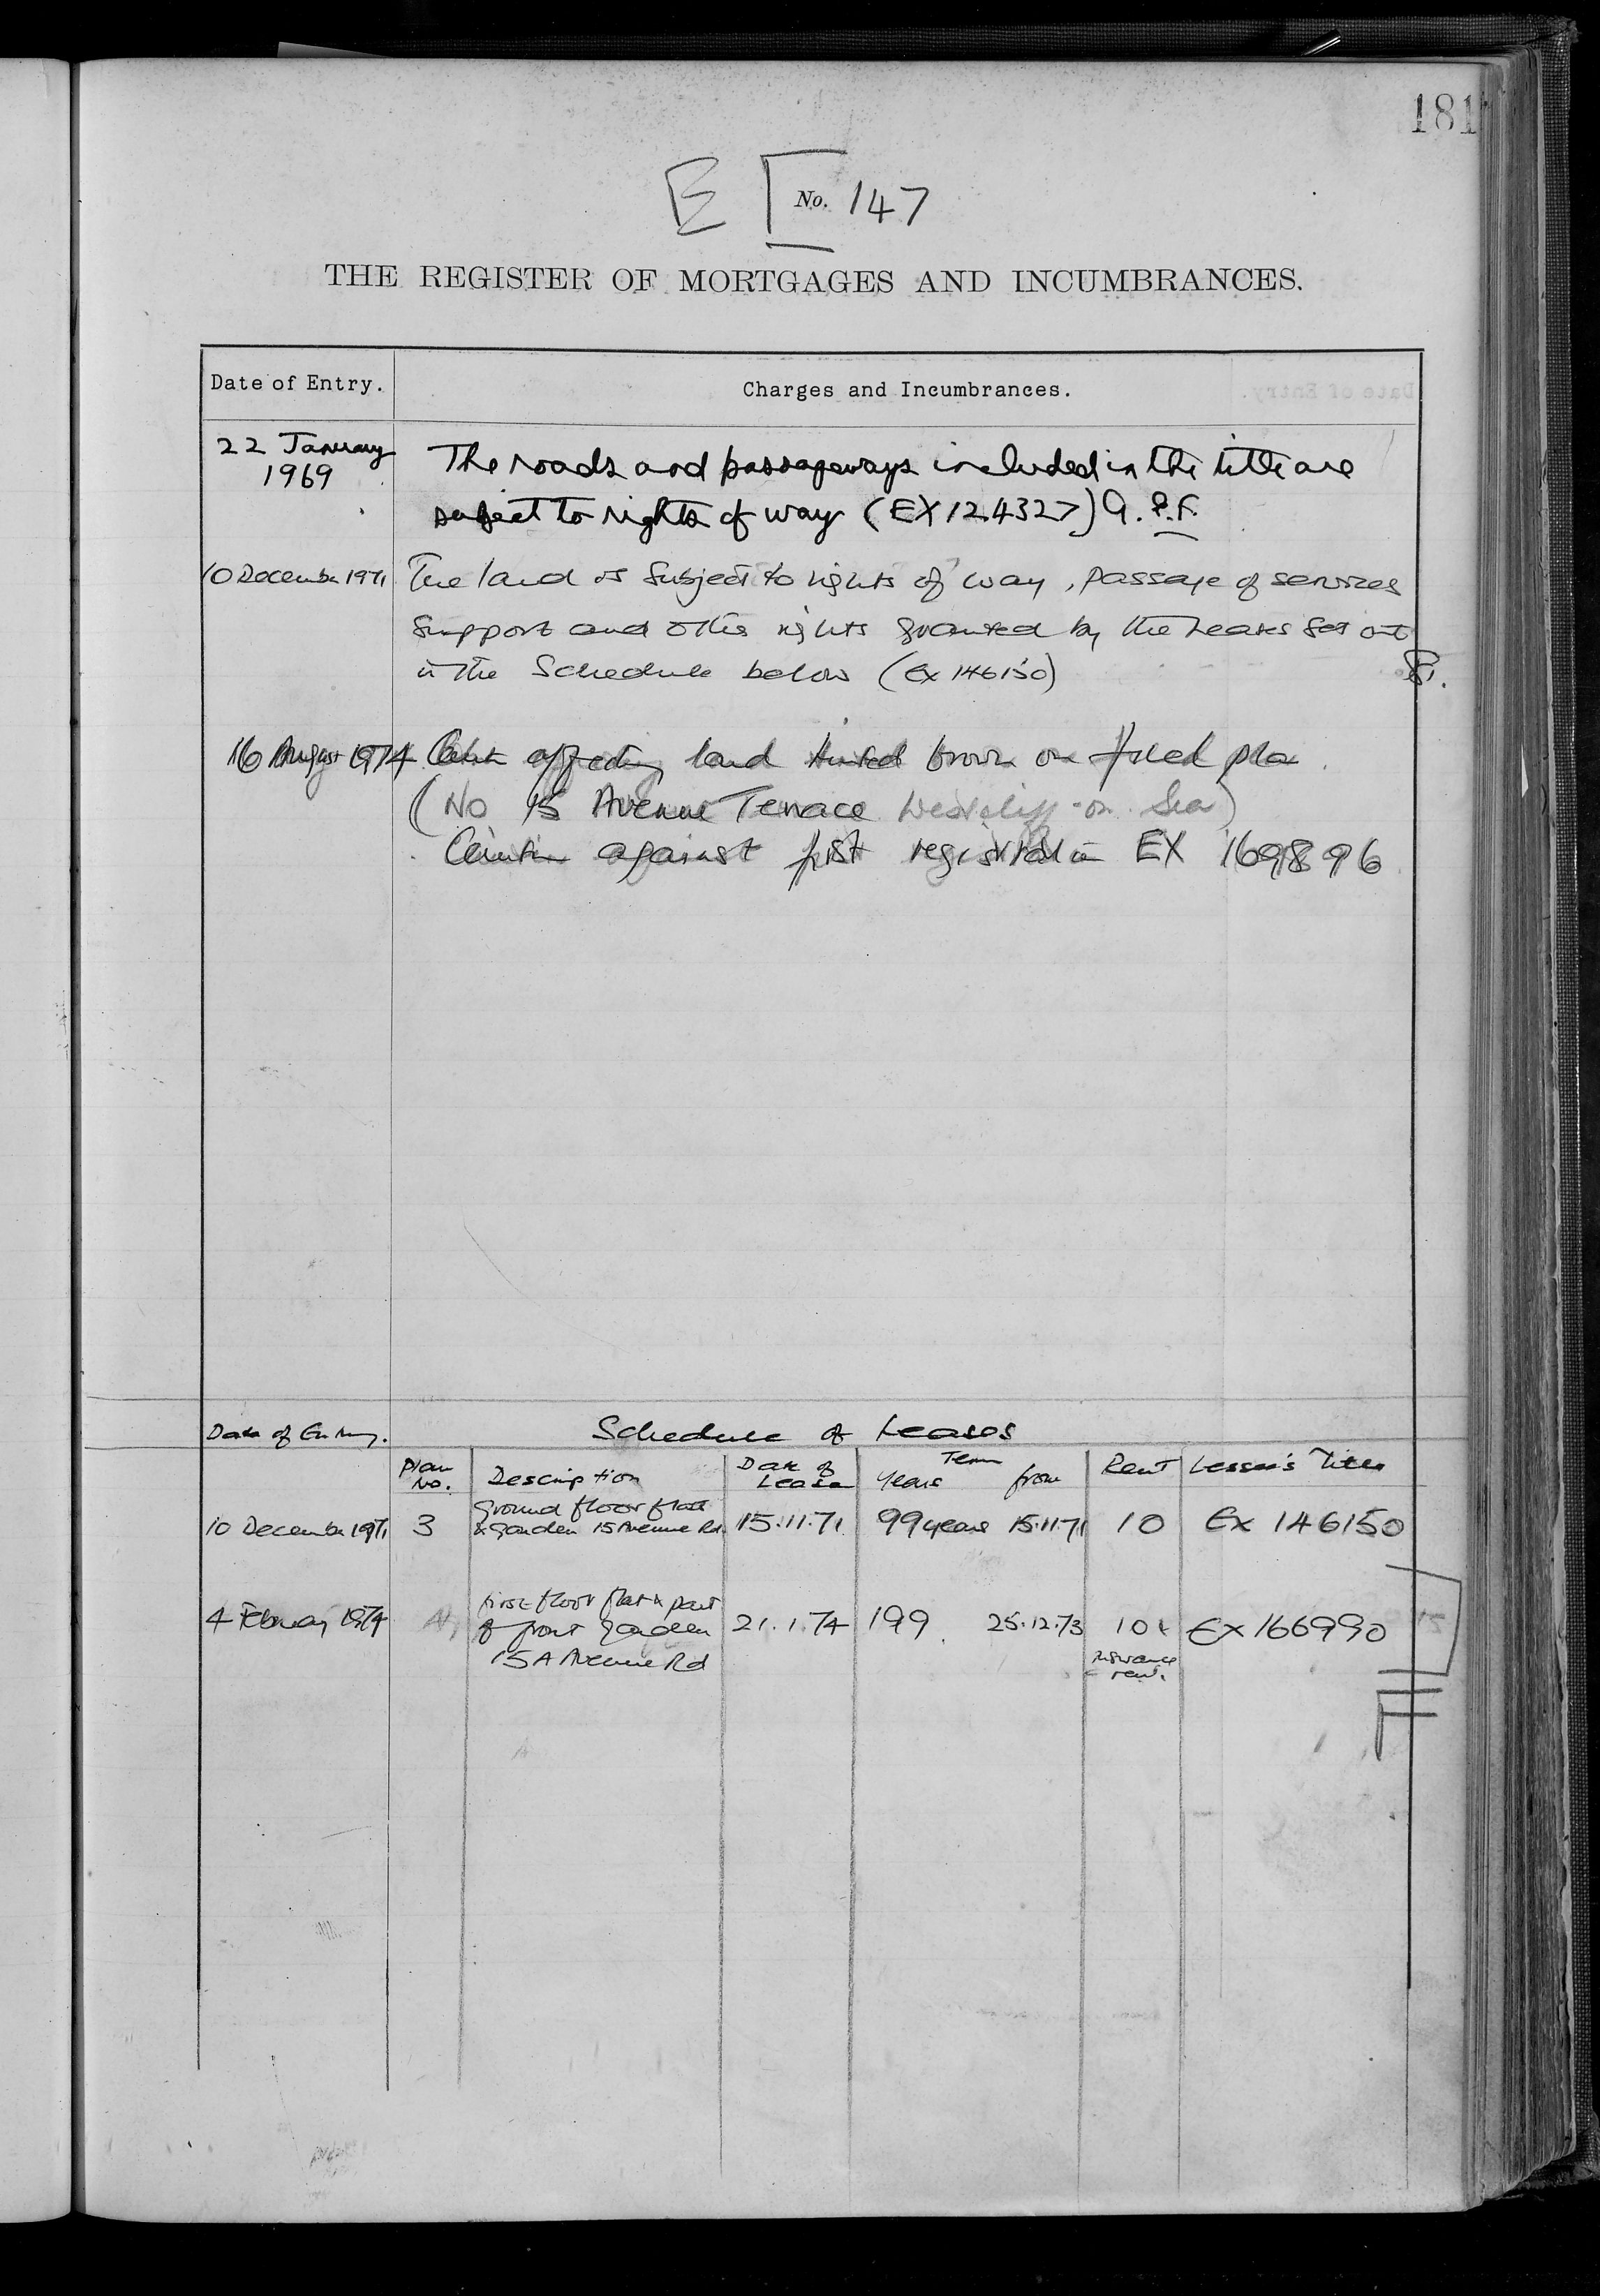 181
E [ No. 147
THE REGISTER OF MORTGAGES AND INCUMBRANCES.
Date of Entry. Charges and Incumbrances.
22 January The roads and passageways included in the title are
1969 subject to rights of way (EX124327) A.P.F.
10 December 1971 The land is subject to rights of way, passage of services
support and other rights granted by the Leases set out
in the Schedule below (Ex 146150)
16 August 1974 affecting land tinted brown on filed plan
(No 15 Avenue Terrace Westcliff-on-Sea)
Caution against first registration EX 169896
Date of Entry. Schedule of Leases
Plan No. Description Date of Lease Term Years from Rent Lessee's Title
ground floor flat
10 December 1971 3 & garden 15 Avenue Rd 15.11.71 99 years 15.11.71 10 Ex 146150
first floor flat & part
4 February 1974 of front garden 21.1.74 199 25.12.73 10 + Ex 166990
15A Avenue Rd insurance
rent.